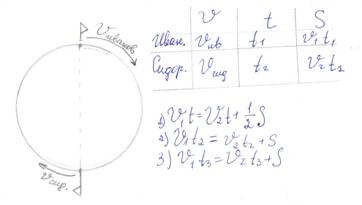 V иванов
V сид.
V t S
Иван. Vив t₁ V₁t₁
Сидор. Vсид t₂ V₂t₂
1) V₁t = V₂t + 1/2 S
2) V₁t₂ = V₂t₂ + S
3) V₁t₃ = V₂t₃ + S